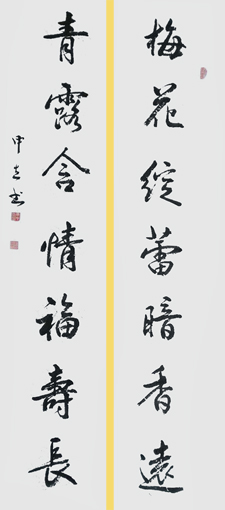 梅花綻蕾暗香遠
青露含情福壽長
甲立书